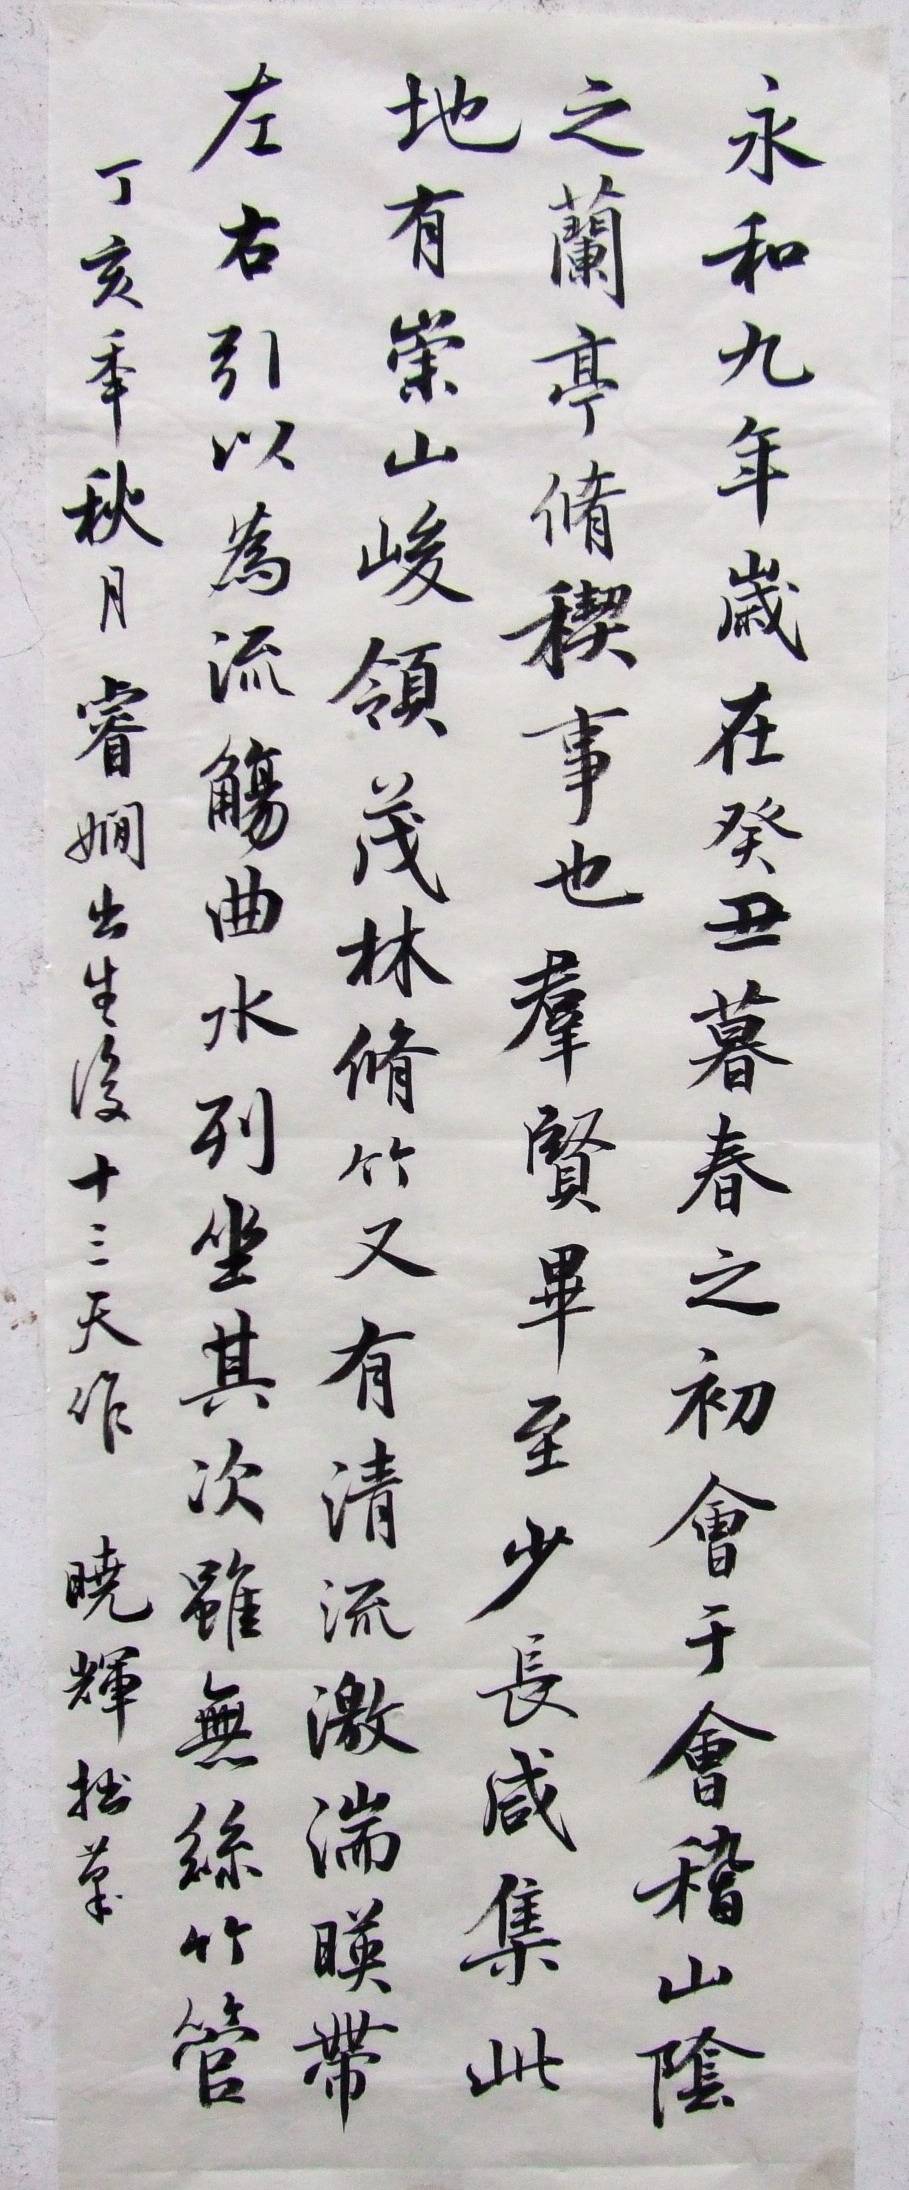 永和九年歲在癸丑暮春之初會于會稽山陰
之蘭亭脩稧事也羣賢畢至少長咸集此
地有崇山峻領茂林脩竹又有清流激湍暎帶
左右引以為流觴曲水列坐其次雖無絲竹管
丁亥年秋月睿嫺出生後十三天作 曉輝拙筆